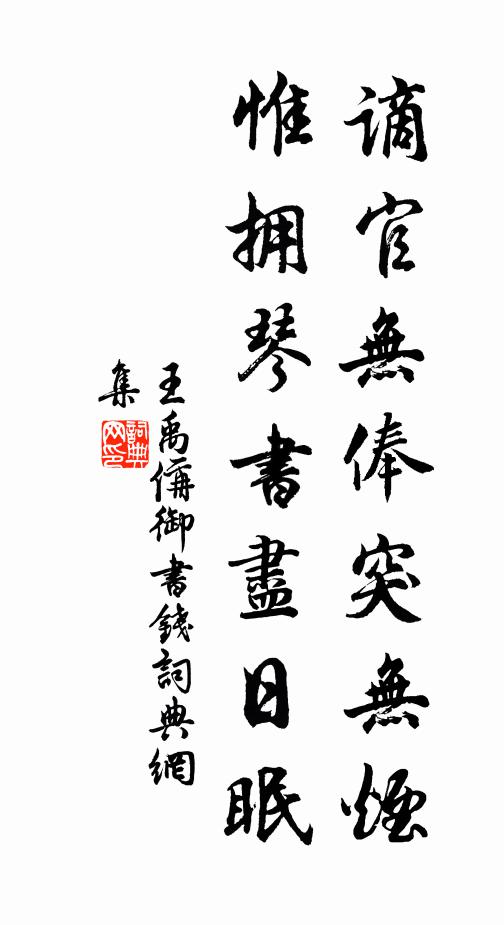 謫官無俸突無煙
惟拥琴書盡日眠
王禹偁御書錢詞典網
集
詞典网印